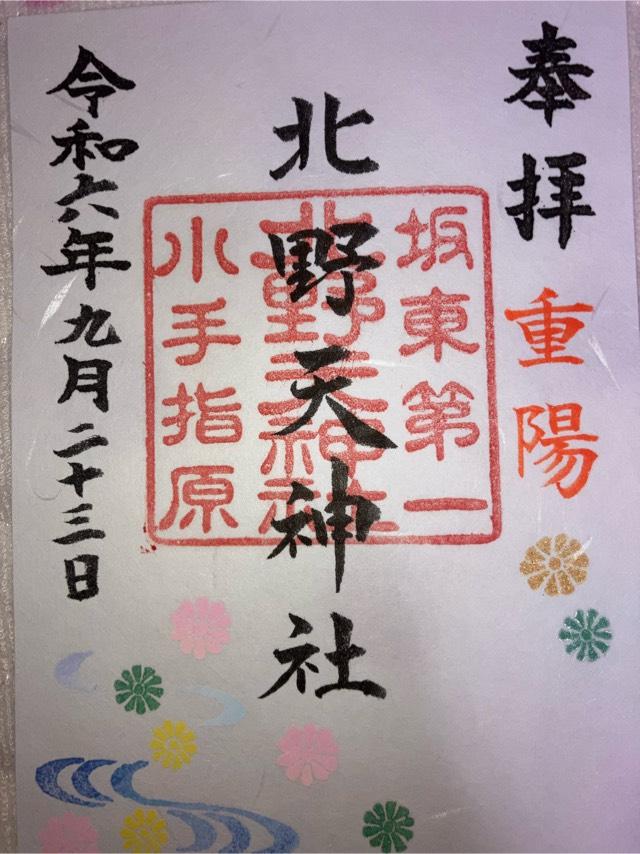 奉拝
重陽
北野天神社
坂東第一
北野天神社
小手指原
令和六年九月二十三日